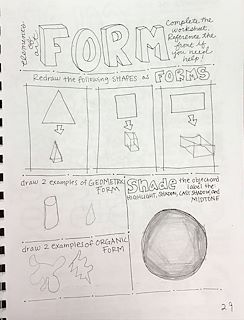 Elements
of
a
FORM
Complete the
worksheet.
Reference the
front if
you need
help!
Redraw the following SHAPES as FORMS
draw 2 examples of GEOMETRIC
FORM
Shade the object and
label the
HIGHLIGHT, SHADOW, CAST SHADOW, and
MIDTONE
draw 2 examples of ORGANIC
FORM
29